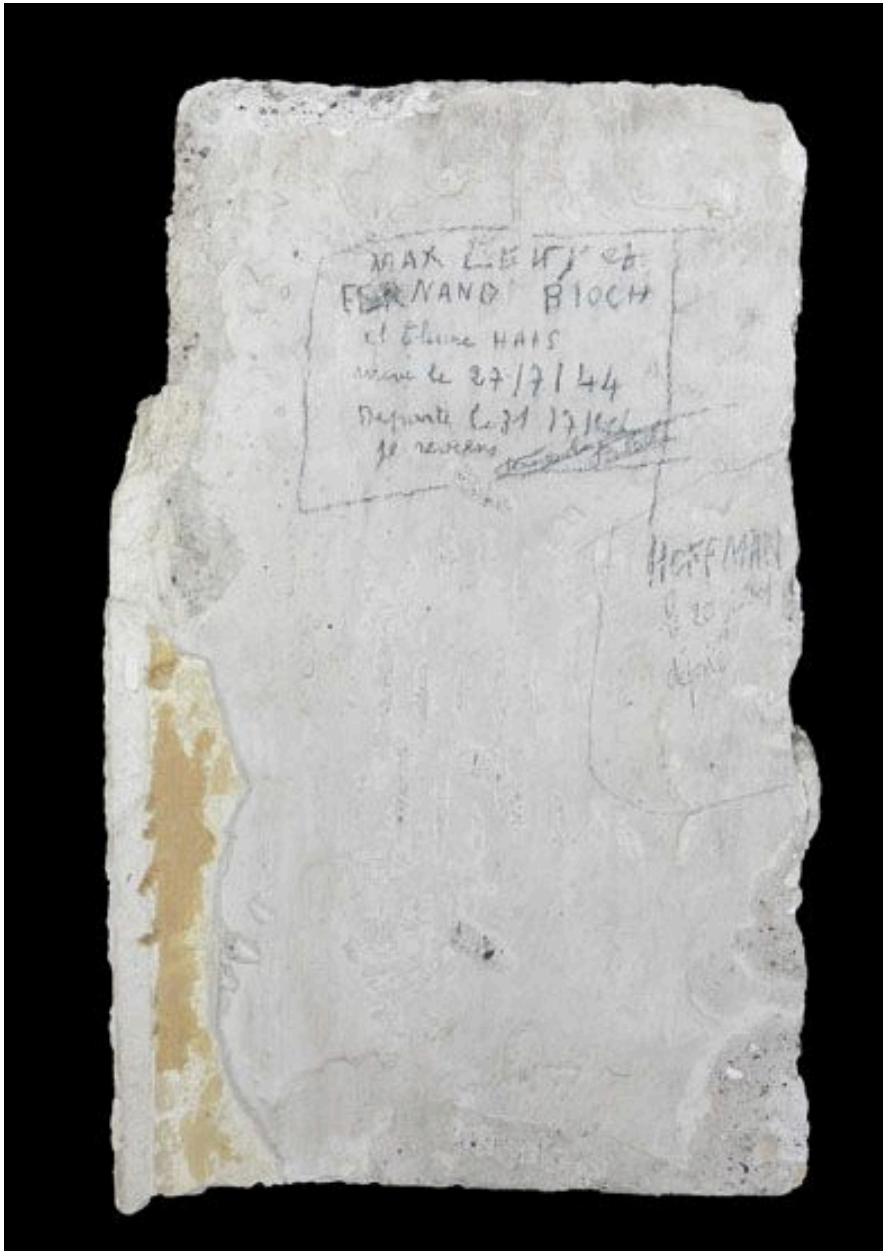 MAX LEVY et
FERNAND BLOCH
et Etienne HAIS
arrivé le 27/7/44
Déporté le 31/7/44
je reviens
HOFFMAN
le 20